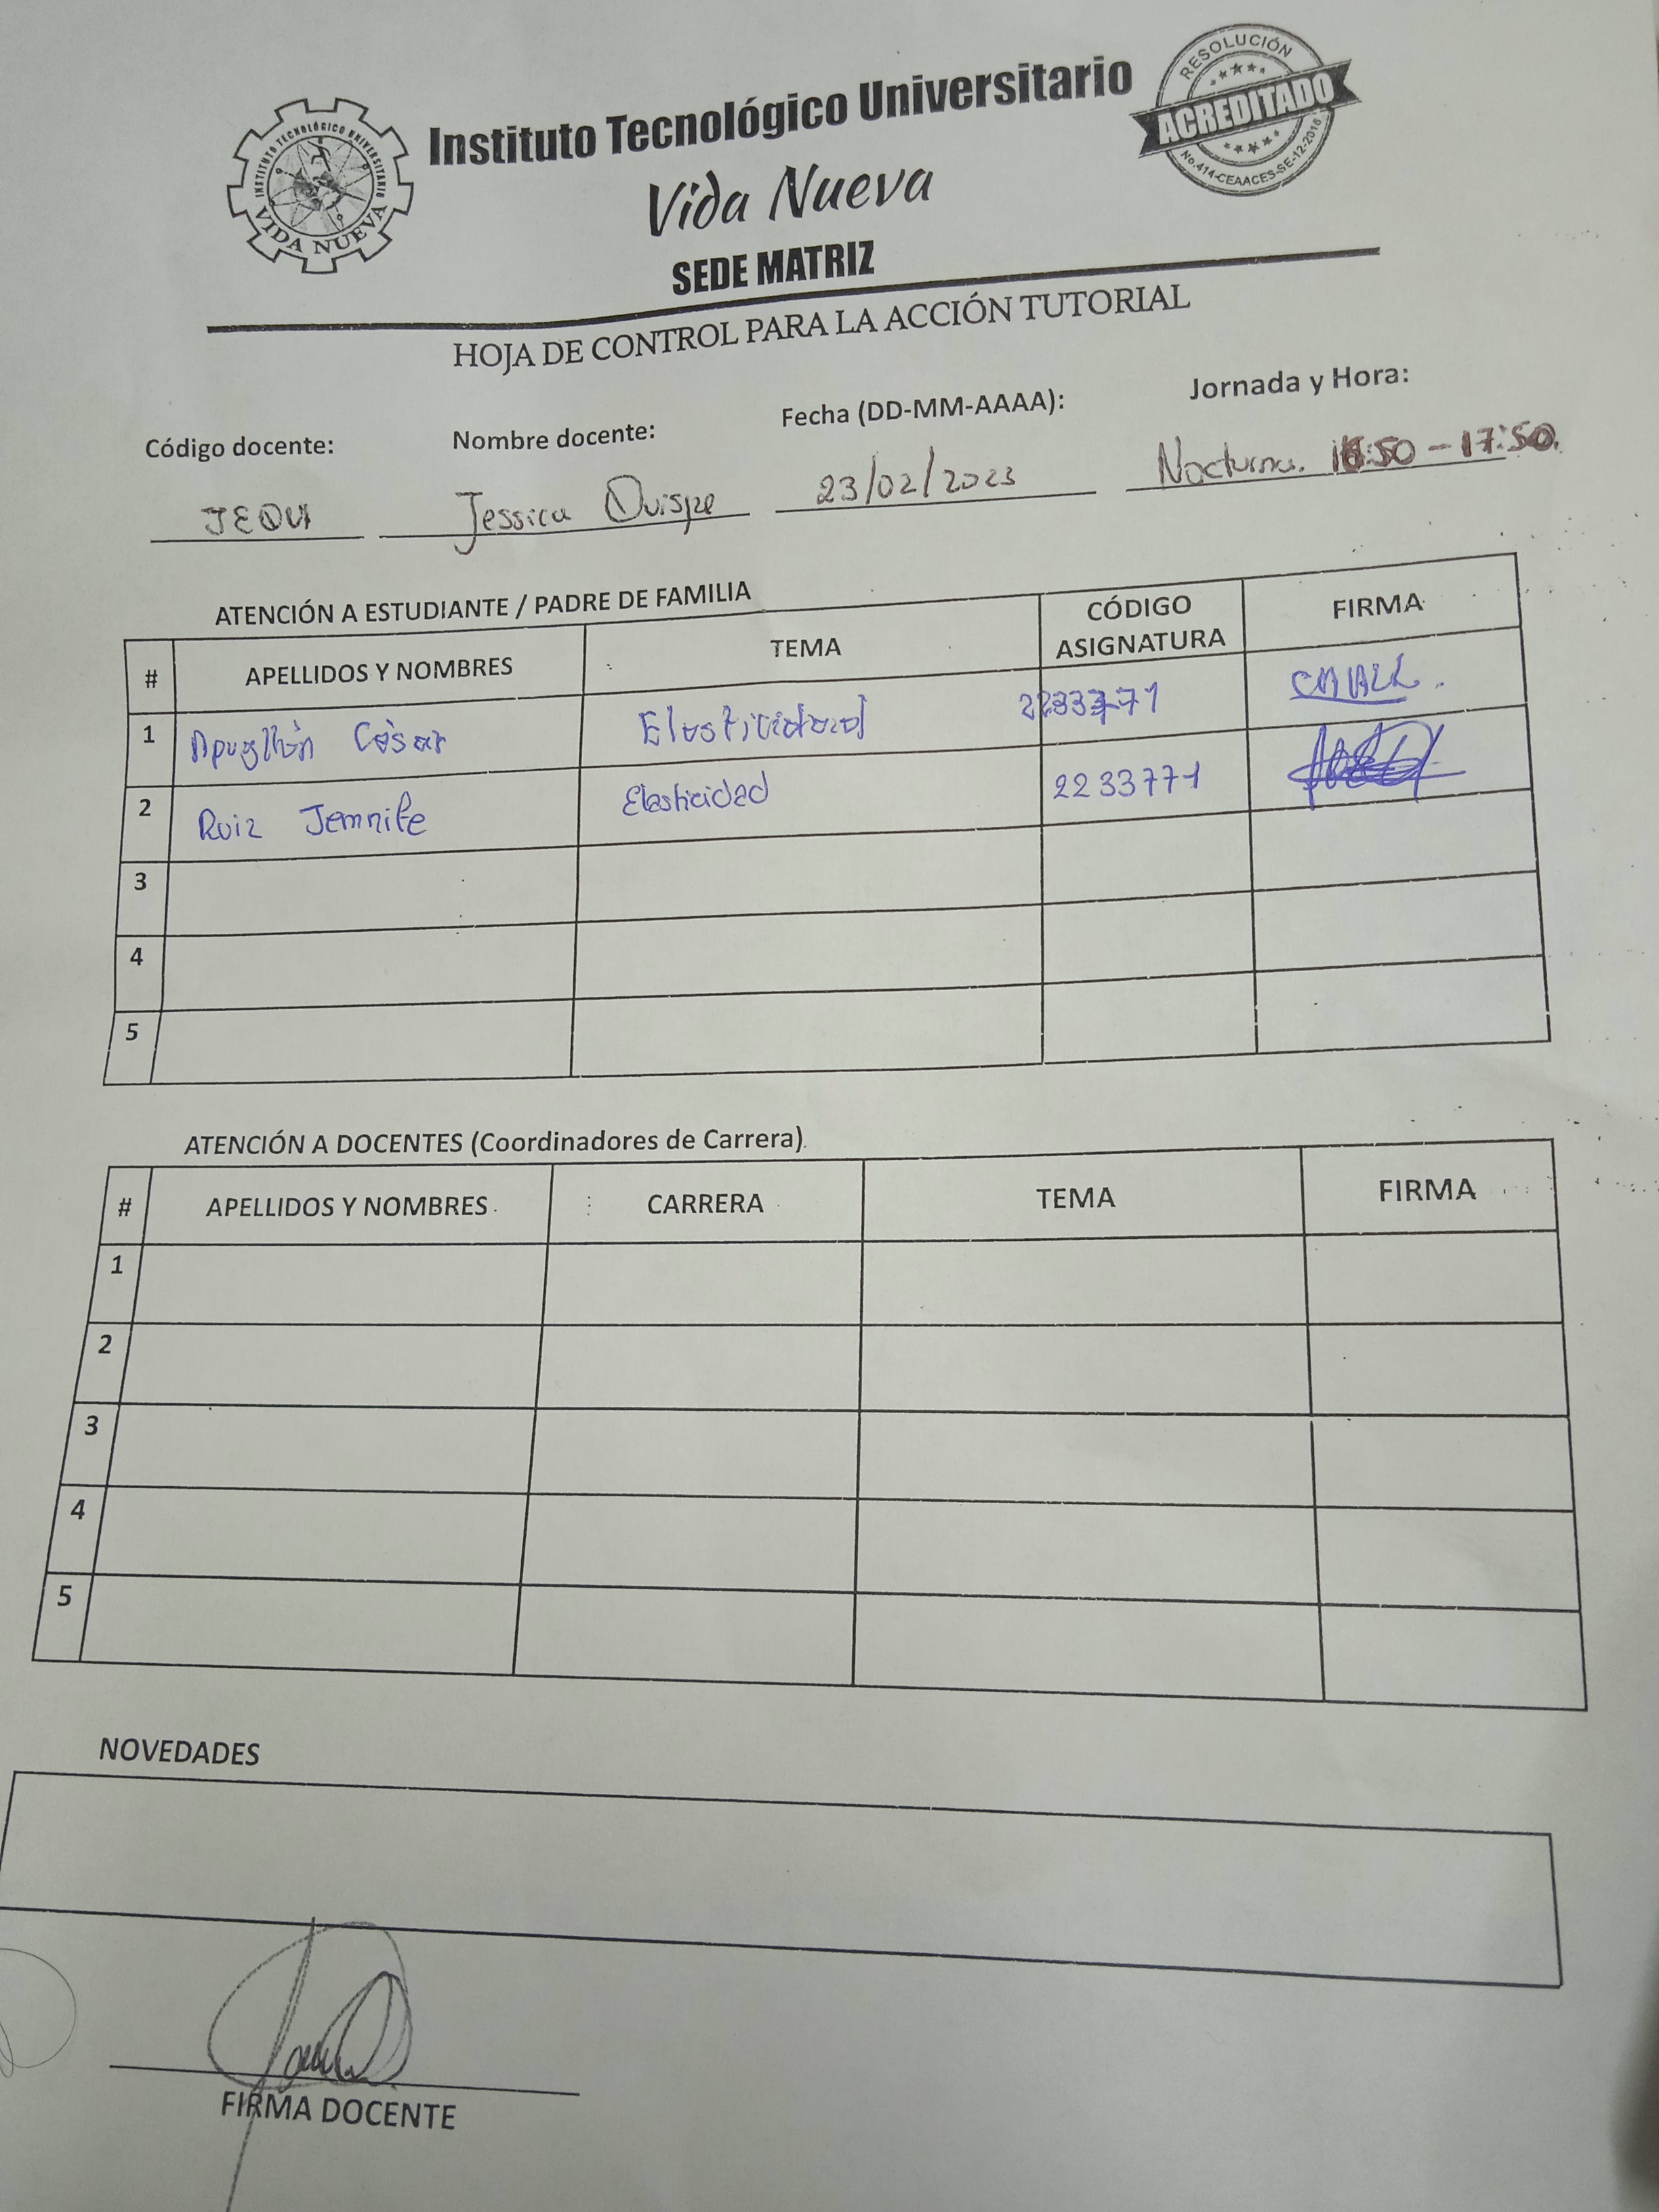 INSTITUTO TECNOLÓGICO UNIVERSITARIO
VIDA NUEVA
Instituto Tecnológico Universitario
Vida Nueva
SEDE MATRIZ
RESOLUCIÓN
ACREDITADO
No.414-CEAACES-SE-12-2016
HOJA DE CONTROL PARA LA ACCIÓN TUTORIAL
Código docente: Nombre docente: Fecha (DD-MM-AAAA): Jornada y Hora:
JEQUI Jessica Quispe 23/02/2023 Nocturna. 16:50 - 17:50.
ATENCIÓN A ESTUDIANTE / PADRE DE FAMILIA
# APELLIDOS Y NOMBRES TEMA CÓDIGO ASIGNATURA FIRMA
1 César Elasticidad 2233771
2 Ruiz Jennife Elasticidad 2233771
3
4
5
ATENCIÓN A DOCENTES (Coordinadores de Carrera)
# APELLIDOS Y NOMBRES CARRERA TEMA FIRMA
1
2
3
4
5
NOVEDADES
FIRMA DOCENTE